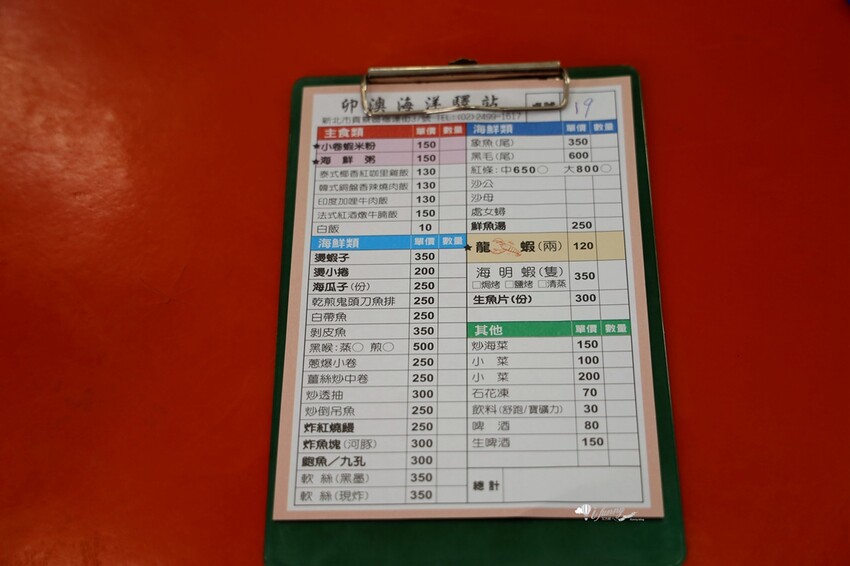 卯澳海洋驛站
19
TEL:(02)2499-1617
主食類 單價 數量
★小卷蝦米粉 150
★海鮮粥 150
泰式椰香紅咖哩雞飯 130
韓式銅盤香辣燒肉飯 130
印度加哩牛肉飯 130
法式紅酒燉牛腩飯 150
白飯 10
海鮮類 單價 數量
燙蝦子 350
燙小捲 200
海瓜子(份) 250
乾煎鬼頭刀魚排 250
白帶魚 250
剝皮魚 350
黑喉:蒸○ 煎○ 500
蔥爆小卷 250
薑絲炒中卷 250
炒透抽 300
炒倒吊魚 250
炸紅燒鰻 250
炸魚塊(河豚) 300
鮑魚/九孔 300
軟絲(黑墨) 350
軟絲(現炸) 350
海鮮類 單價 數量
象魚(尾) 350
黑毛(尾) 600
紅條:中650○ 大800○
沙公
沙母
處女蟳
鮮魚湯 250
★龍蝦(兩) 120
海明蝦(隻) 350
□焗烤 □鹽烤 □清蒸
生魚片(份) 300
其他 單價 數量
炒海菜 150
小菜 100
小菜 200
石花凍 70
飲料(舒跑/寶礦力) 30
啤酒 80
生啤酒 150
總計